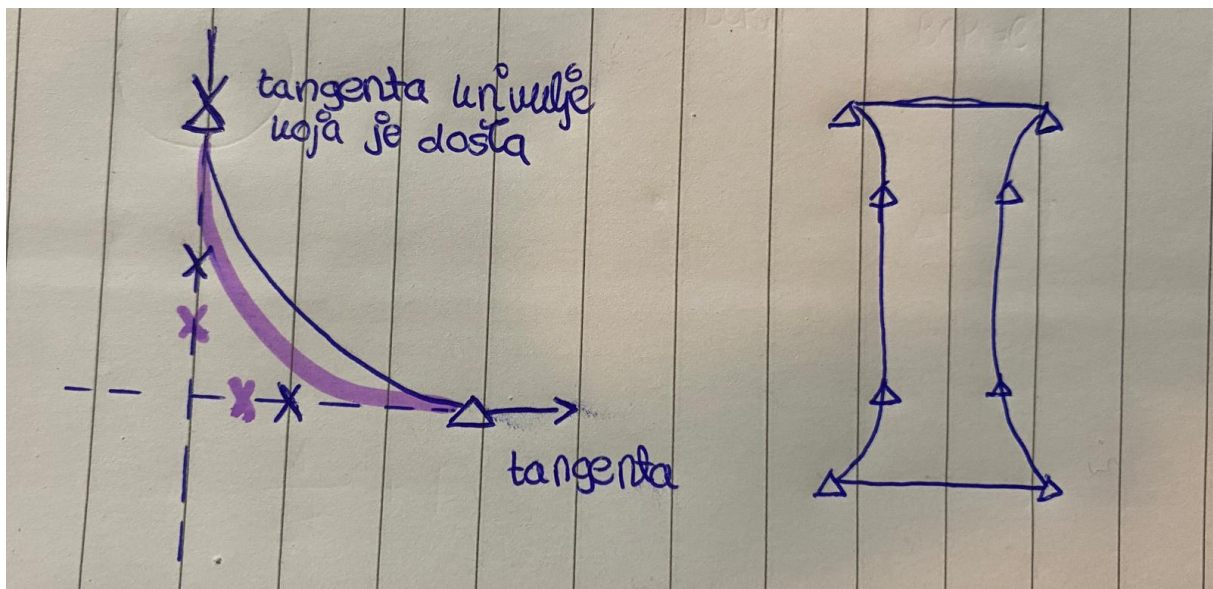 tangenta krivulje
koja je došla
tangenta